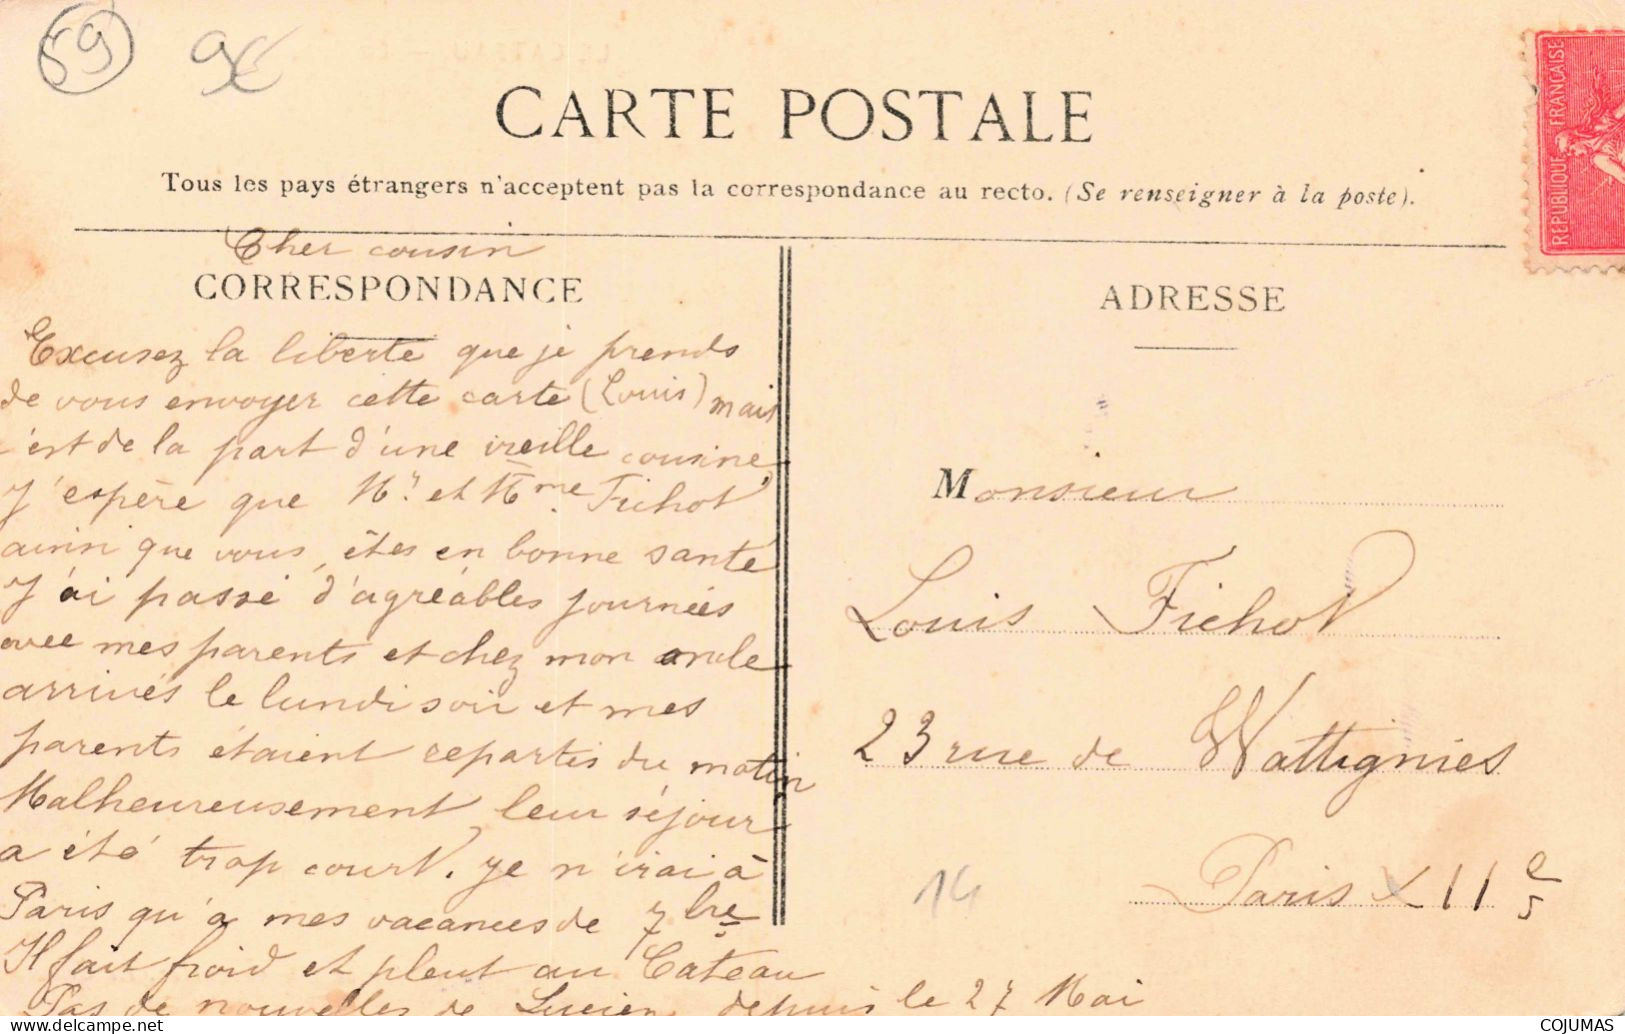 59 9€
CARTE POSTALE
Tous les pays étrangers n'acceptent pas la correspondance au recto. (Se renseigner à la poste).
REPUBLIQUE FRANÇAISE
Cher cousin
CORRESPONDANCE
Excusez la liberté que je prends
de vous envoyer cette carte (Louis) mais
c'est de la part d'une vieille cousine,
J'espère que Mr et Mme Fichot
ainsi que vous, êtes en bonne santé
J'ai passé d'agréables journées
avec mes parents et chez mon oncle
arrivés le lundi soir et mes
parents étaient repartis du matin
Malheureusement, leur séjour
a été trop court. Je n'irai à
Paris qu'à mes vacances de 7bre
Il fait froid et pleut au Cateau
Pas de nouvelles de Lucien depuis le 27 Mai
ADRESSE
Monsieur
Louis Fichot
23 rue de Wattignies
Paris X 11 e
14
COJUMAS